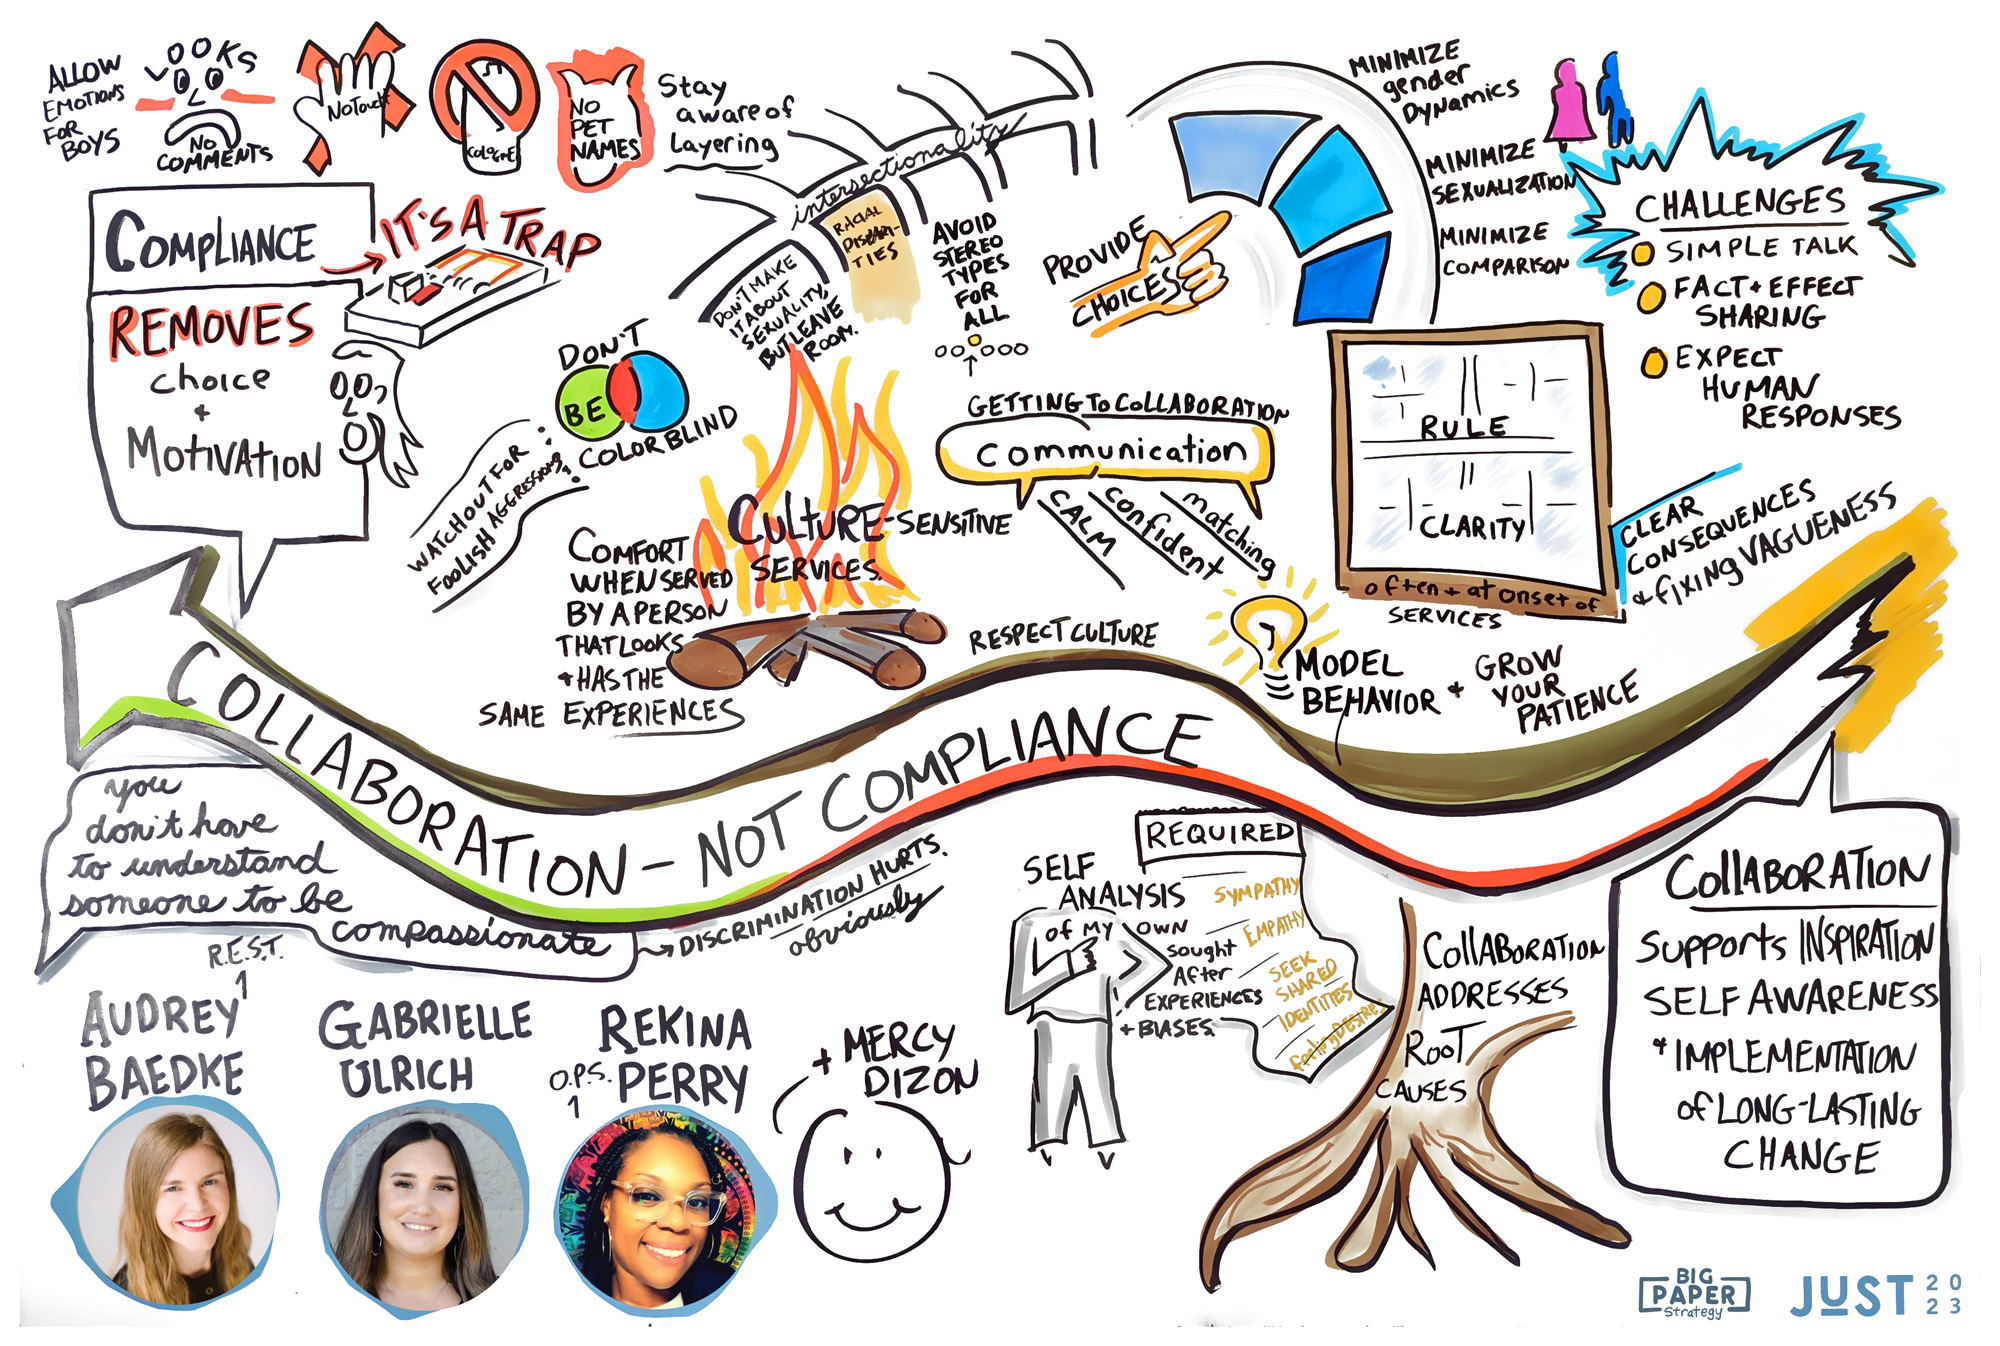 ALLOW
EMOTIONS
FOR
BOYS
LOOKS
NO
COMMENTS
NO Touch
COLOGNE
NO
PET
NAMES
Stay
aware of
Layering
COMPLIANCE
IT'S A TRAP
REMOVES
choice
+
MOTIVATION
intersectionality
RACIAL
DISPARI-
TIES
DON'T MAKE
IT ABOUT
SEXUALITY,
BUT LEAVE
ROOM.
AVOID
STEREO
TYPES
FOR
ALL
PROVIDE
CHOICES
MINIMIZE
gender
DYNAMICS
MINIMIZE
SEXUALIZATION
MINIMIZE
COMPARISON
CHALLENGES
SIMPLE TALK
FACT + EFFECT
SHARING
EXPECT
HUMAN
RESPONSES
DON'T
BE
COLOR BLIND
WATCH OUT FOR
FOOLISH AGGRESSIONS
COMFORT
WHEN SERVED
BY A PERSON
THAT LOOKS
+ HAS THE
SAME EXPERIENCES
CULTURE-SENSITIVE
SERVICES.
GETTING TO COLLABORATION
communication
CALM
confident
matching
RULE
CLARITY
often + at onset of
SERVICES
CLEAR
CONSEQUENCES
+ fixing VAGUENESS
RESPECT CULTURE
MODEL
BEHAVIOR +
GROW
YOUR
PATIENCE
COLLABORATION - NOT COMPLIANCE
you
don't have
to understand
someone to be
compassionate
DISCRIMINATION HURTS.
obviously
R.E.S.T.
AUDREY
BAEDKE
GABRIELLE
ULRICH
REKINA
O.P.S.
PERRY
+ MERCY
DIZON
SELF
ANALYSIS
of MY OWN
sought
After
EXPERIENCES
+ BIASES.
REQUIRED
SYMPATHY
EMPATHY
SEEK
SHARED
IDENTITIES
CollABORATION
ADDRESSES
ROOT
CAUSES
CollABORATION
Supports INSPIRATION
SELF AWARENESS
+ IMPLEMENTATION
of LONG-LASTING
CHANGE
BIG
PAPER
Strategy
JUST 2023